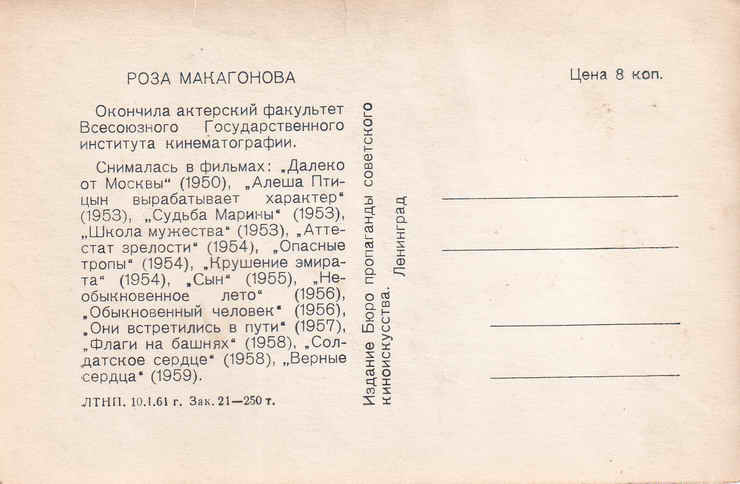 РОЗА МАКАГОНОВА
Окончила актерский факультет
Всесоюзного Государственного
института кинематографии.
Снималась в фильмах: „Далеко
от Москвы“ (1950), „Алеша Пти-
цын вырабатывает характер“
(1953), „Судьба Марины“ (1953),
„Школа мужества“ (1953), „Атте-
стат зрелости“ (1954), „Опасные
тропы“ (1954), „Крушение эмира-
та“ (1954), „Сын“ (1955), „Не-
обыкновенное лето“ (1956),
„Обыкновенный человек“ (1956),
„Они встретились в пути“ (1957),
„Флаги на башнях“ (1958), „Сол-
датское сердце“ (1958), „Верные
сердца“ (1959).
ЛТНП. 10.1.61 г. Зак. 21—250 т.
Издание Бюро пропаганды советского
киноискусства. Ленинград
Цена 8 коп.